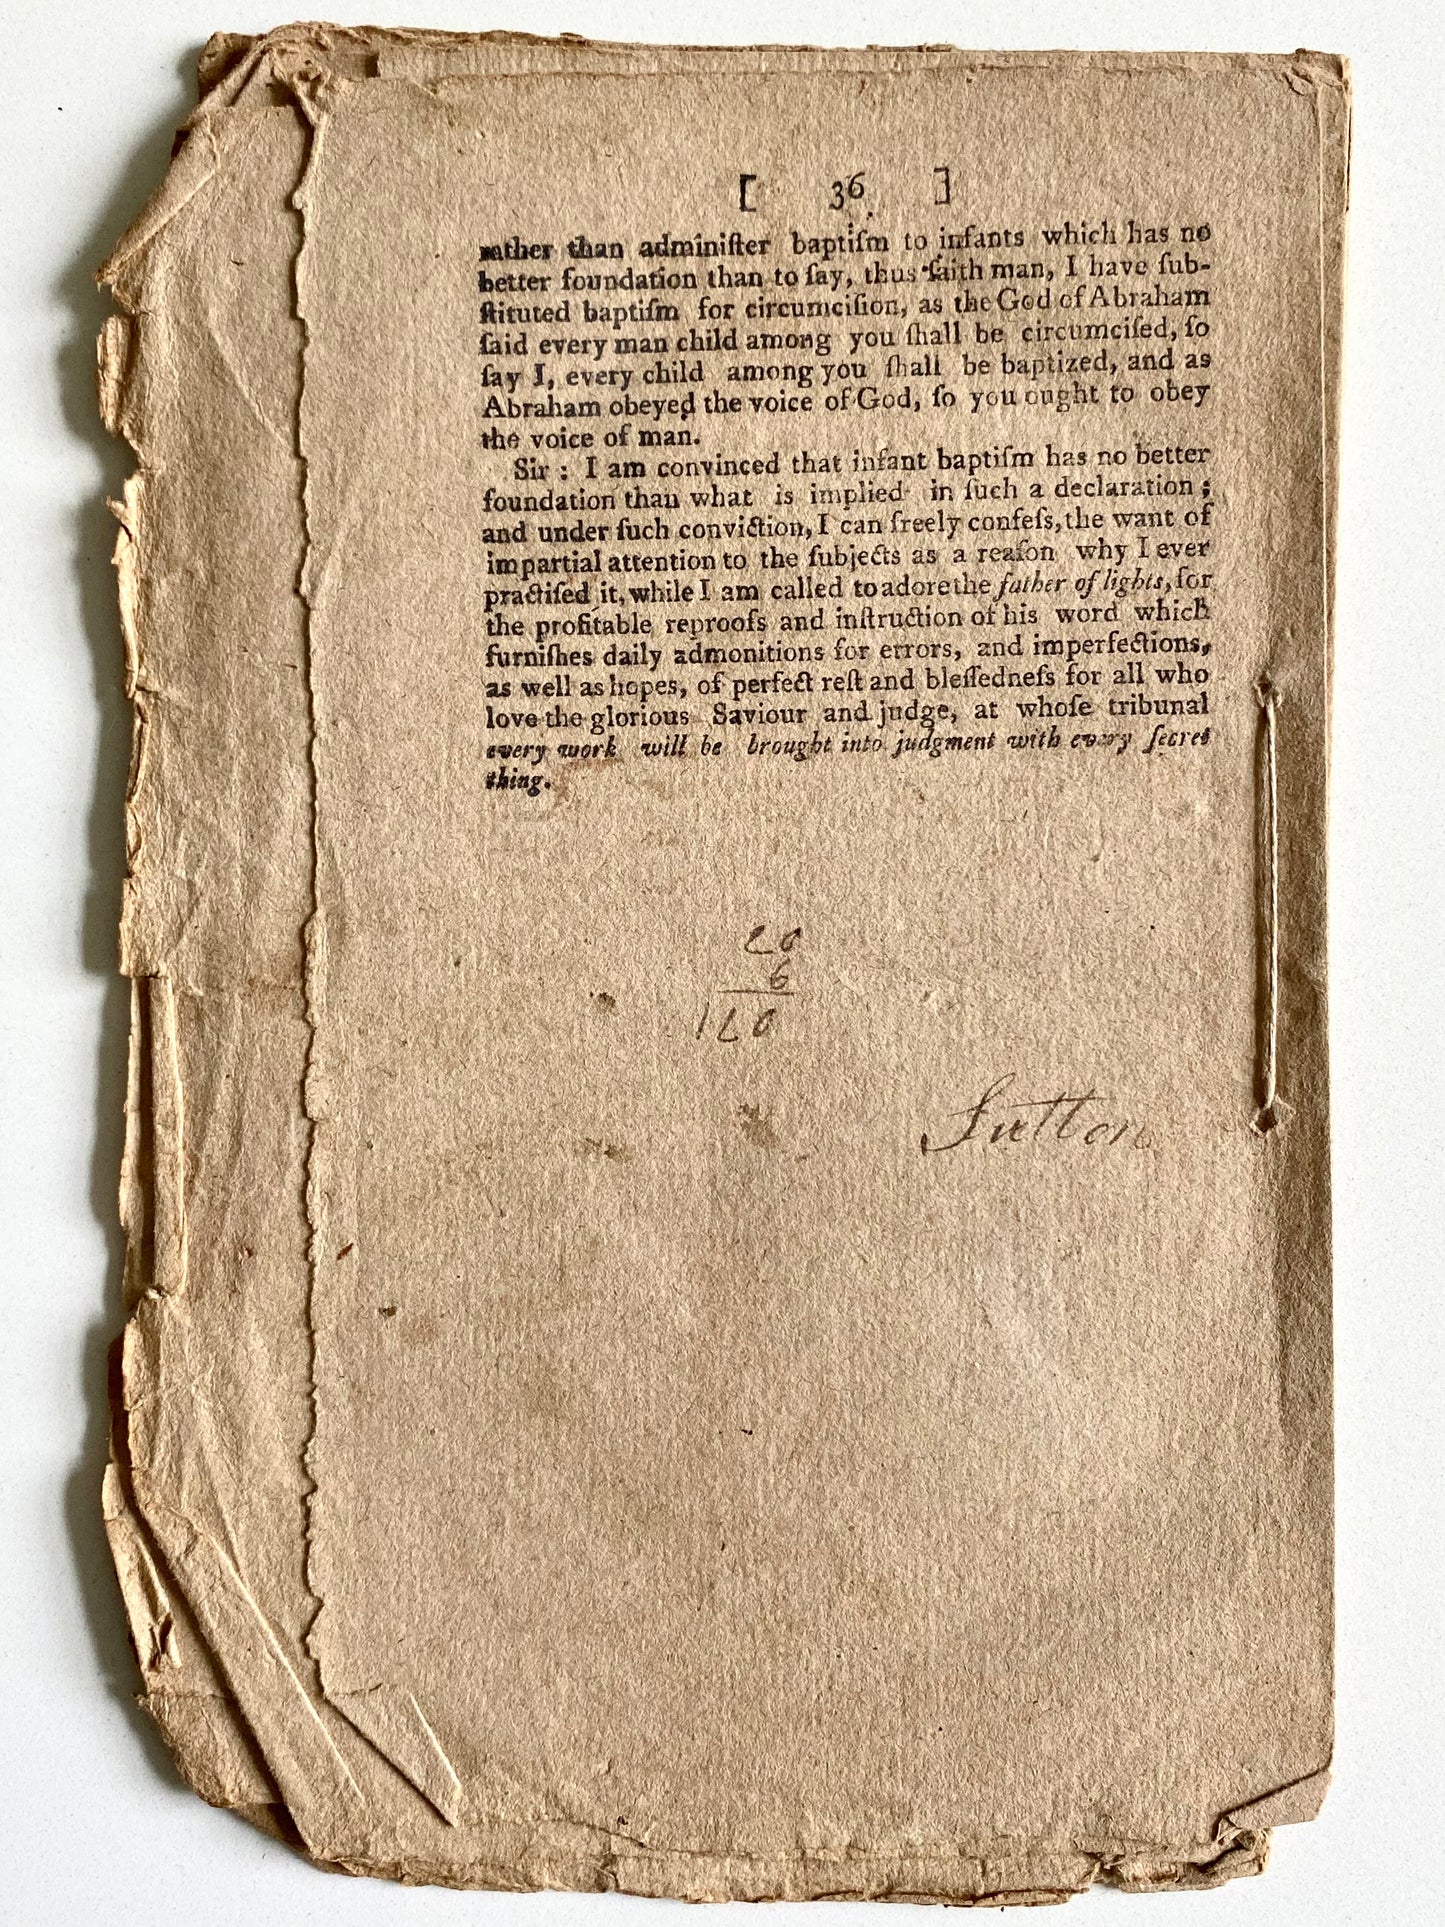 [ 36 ]
rather than adminiſter baptiſm to infants which has no
better foundation than to ſay, thus ſaith man, I have ſub-
ſtituted baptiſm for circumciſion, as the God of Abraham
ſaid every man child among you ſhall be circumciſed, ſo
ſay I, every child among you ſhall be baptized, and as
Abraham obeyed the voice of God, ſo you ought to obey
the voice of man.
Sir : I am convinced that infant baptiſm has no better
foundation than what is implied in ſuch a declaration ;
and under ſuch conviction, I can freely confeſs, the want of
impartial attention to the ſubjects as a reaſon why I ever
practiſed it, while I am called to adore the father of lights, for
the profitable reproofs and inſtruction of his word which
furniſhes daily admonitions for errors, and imperfections,
as well as hopes, of perfect reſt and bleſſedneſs for all who
love the glorious Saviour and judge, at whoſe tribunal
every work will be brought into judgment with every ſecret
thing.
20
6
120
Sutton